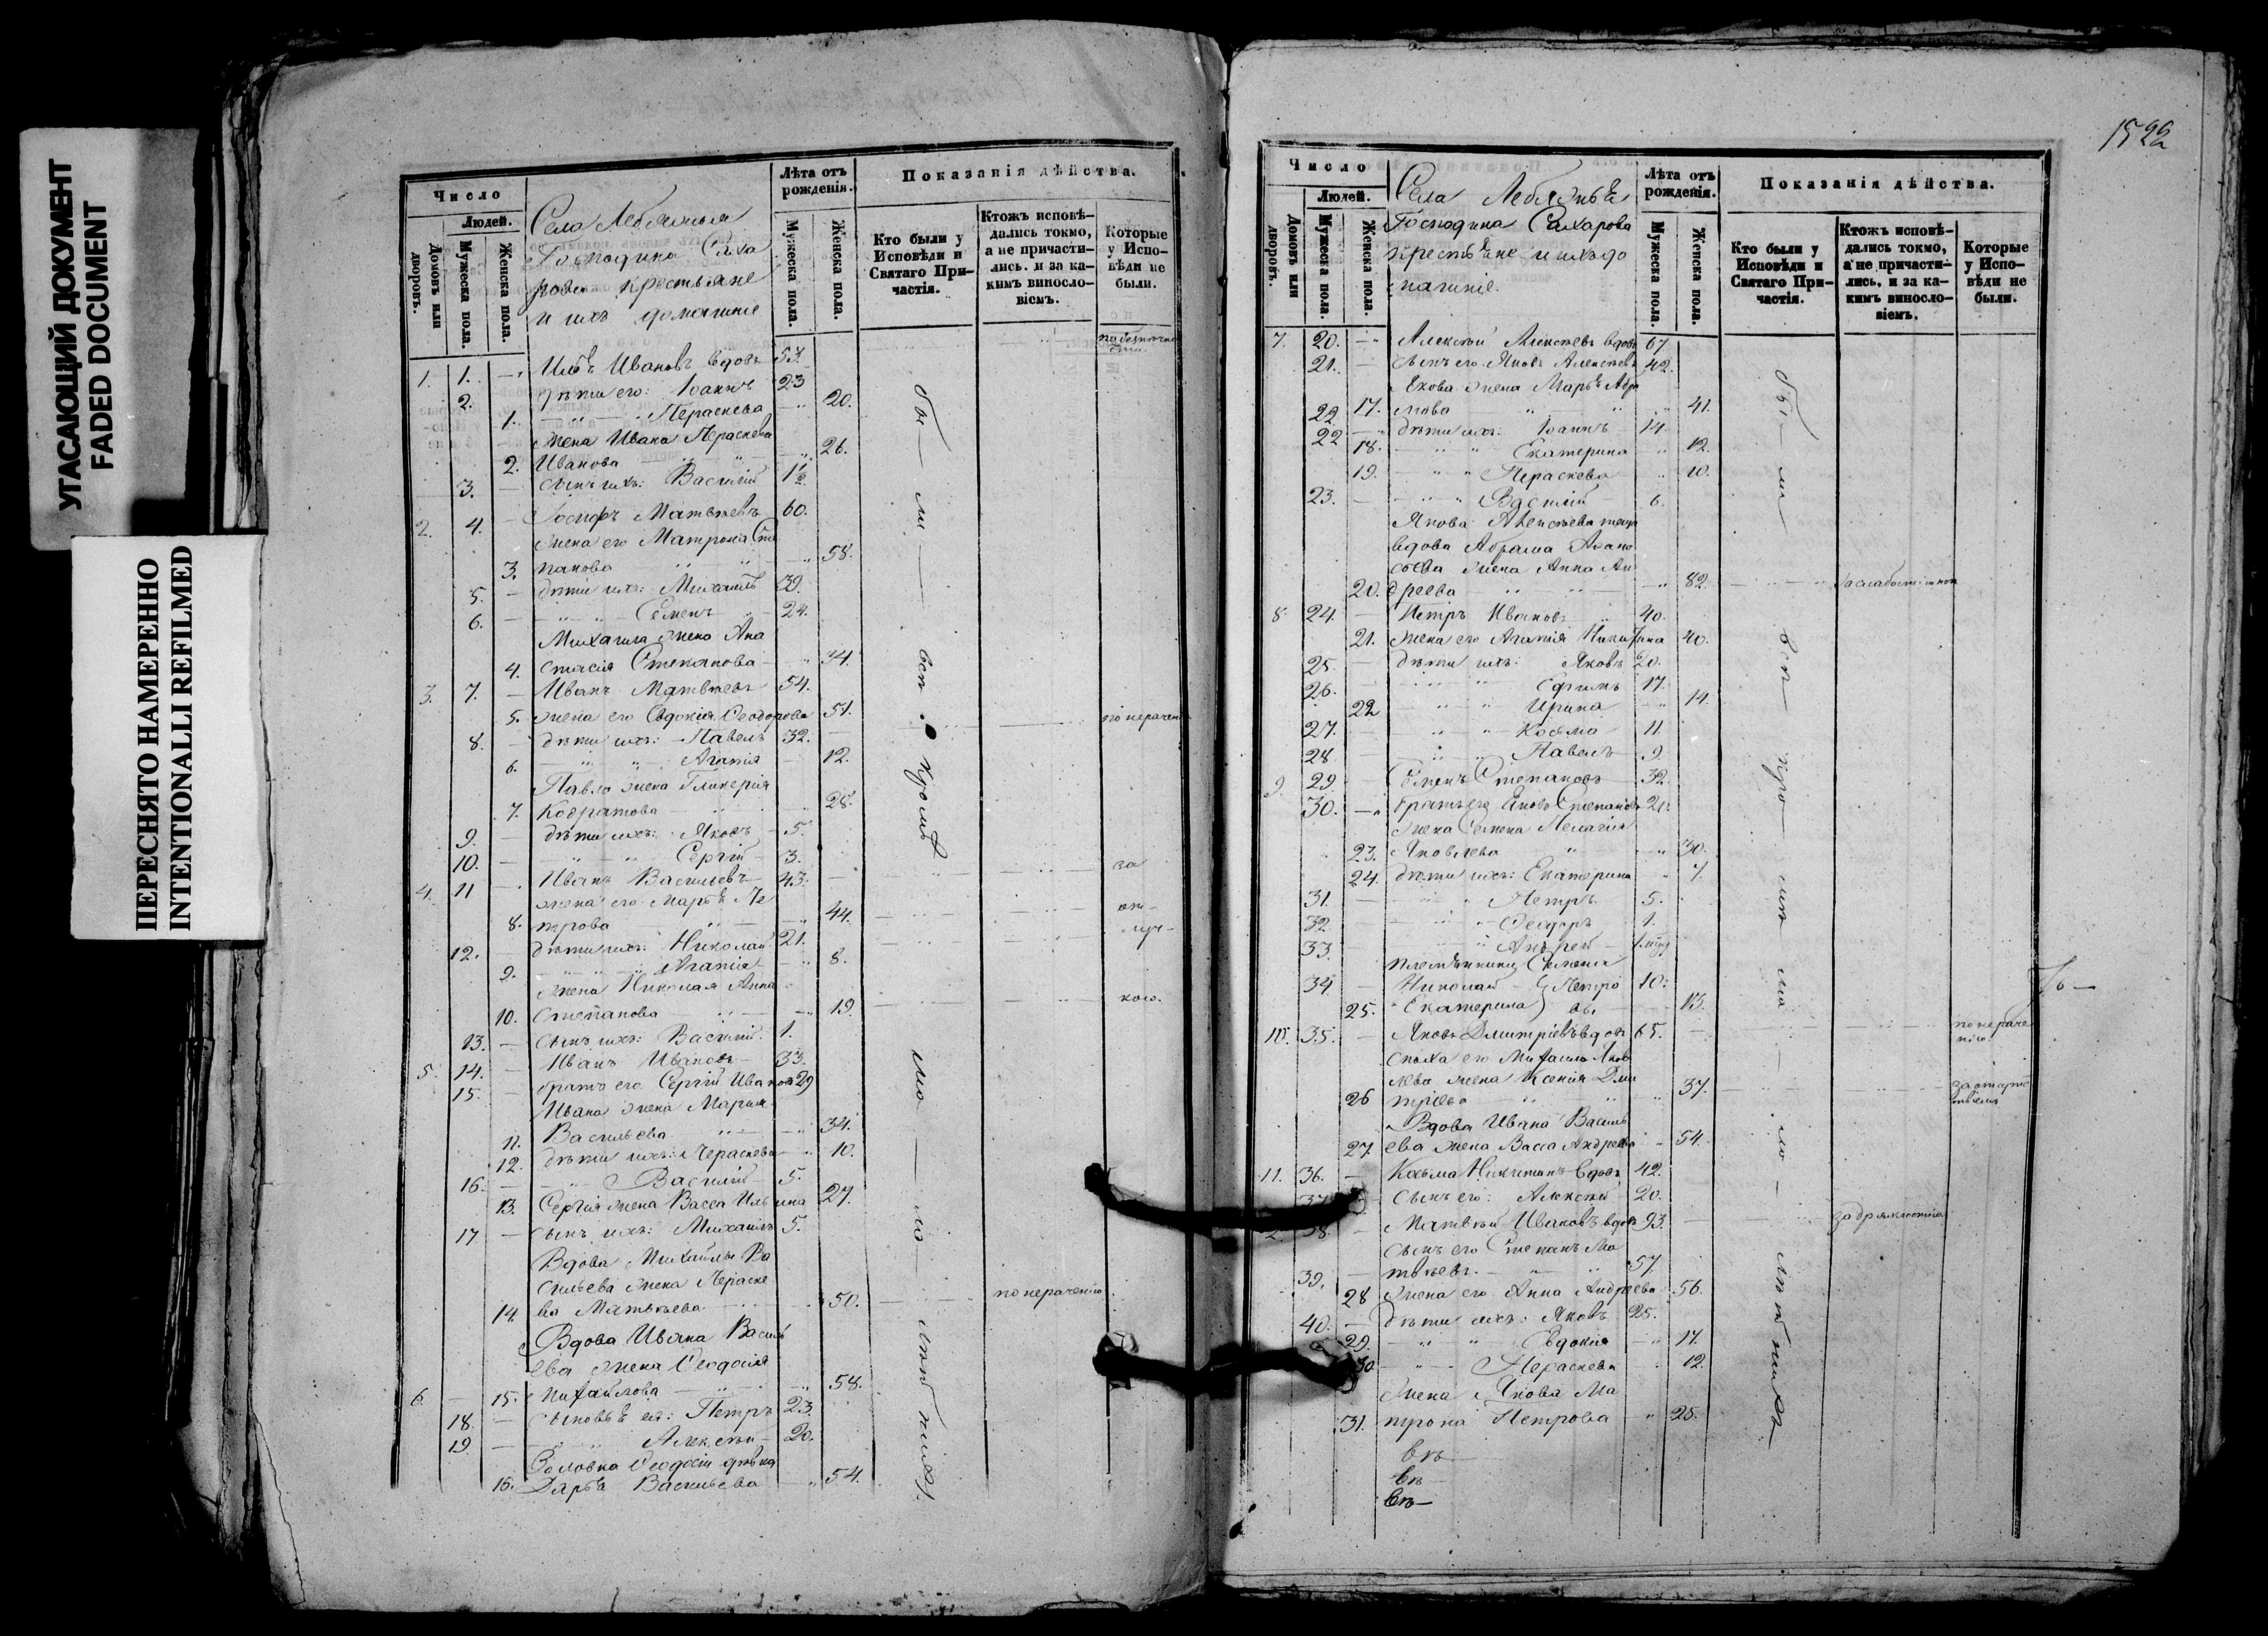 УГАСАЮЩИЙ ДОКУМЕНТ
FADED DOCUMENT
ПЕРЕСНЯТО НАМЕРЕННО
INTENTIONALLI REFILMED
Число
Людей.
Домовъ или дворовъ.
Мужеска пола.
Женска пола.
Села Лебяжья
Господина Саха
рова крестьяне
и ихъ домашніе
Лѣта отъ рожденія.
Мужеска пола.
Женска пола.
Показанія дѣйства.
Кто были у Исповѣди и Святаго Причастія.
Ктожъ исповѣдались токмо, а не причастились. и за какимъ винословіемъ.
Которые у Исповѣди не были.
1. 1. — Иванов вдовъ 57.
2. дѣти его: Іоаннъ 23
1. Параскева 20.
жена Ивана Параскева
2. Иванова 26.
3. — сынъ ихъ: Василій 1½
2. 4. — Іосифъ Матвѣевъ 60.
жена его Матрона Сте
3. панова 58.
5. — дѣти ихъ: Михаилъ 39.
6. — Семенъ 24.
Михаила жена Ана
4. стасія Степанова 34.
3. 7. — Иванъ Матвѣевъ 54.
5. жена его Евдокія Ѳеодорова 51. по нерачен
8. — дѣти ихъ: Павелъ 32.
6. Агапія 12.
Павла жена Гликерія
7. Кодратова 28.
9. — дѣти ихъ: Яковъ 5.
10. — Сергій 3.
4. 11 — Иванъ Васильевъ 43. за
жена его Марья Пе
8. трова 44. от-
12. — дѣти ихъ: Николай 21. луч-
9. Агапія 8.
жена Николая Анна
10. Степанова 19. кою.
13. — сынъ ихъ: Василій 1.
5. 14. — Иванъ Ивановъ 33.
15. — братъ его Сергій Ивановъ 29
Ивана жена Марія
11. Васильева 34.
12. дѣти ихъ: Параскева 10.
16. — Василій 5.
13. Сергія жена Васса Ильина 27.
17 — сынъ ихъ: Михаилъ 5.
Вдова Михайлы Ва
сильева жена Параске
14. ва Матвѣева 50. по нерачению
Вдова Ивана Василь
ева жена Ѳеодосія
6 — 15. Михайлова 58.
18. — сыновья ея: Петръ 23.
19 — Алексѣй 20.
Золовка Ѳеодосіи дѣвка
16. Дарья Васильева 54.
бы — ли — всѣ кромѣ мо — ло — лѣтнихъ
1522
Число
Людей.
Домовъ или дворовъ.
Мужеска пола.
Женска пола.
Села Лебяжья
Господина Сахарова
крестьяне и ихъ до
машніе.
Лѣта отъ рожденія.
Мужеска пола.
Женска пола.
Показанія дѣйства.
Кто были у Исповѣди и Святаго Причастія.
Ктожъ исповѣдались токмо, а не причастились, и за какимъ винословіемъ.
Которые у Исповѣди не были.
7. 20. — Алексѣй Алексѣевъ вдовъ 67
21. — сынъ его Яковъ Алексѣевъ 42.
Якова жена Марья Абра
22 17. мова 41.
22 — дѣти ихъ: Іоаннъ 14.
18. Екатерина 12.
19. Параскева 10.
23. — Василій 6.
Якова Алексѣева теща
вдова Абрама Афана
сьева жена Анна Ан
20. дреева 82.
8 24. — Петръ Ивановъ 40.
21. жена его Агапія Никитина 40.
25. — дѣти ихъ: Яковъ 20.
26. — Ефимъ 17.
22 Ирина 14.
27. — Козьма 11.
28 — Павелъ 9.
9 29 — Семенъ Степановъ 32
30. — братъ его Яковъ Степановъ 20.
жена Семена Пелагія
23. Яковлева 30.
24. дѣти ихъ: Екатерина 7.
31. — Петръ 5.
32 — Ѳеодоръ 1.
33. — Андрей
племянники Семена
34. — Николай } Петро 10.
25. Екатерина } вы 13.
10. 35. — Яковъ Дмитріевъ вдовъ 65. по нераче нію
сноха его Михаила Яков
лева жена Ксенія Дми
26 тріева 37.
Вдова Ивана Василь
27. ева жена Васса Андреева 54.
11. 36. — Козьма Никитинъ вдовъ 42.
37. — сынъ его: Алексѣй 20.
12 38. — Матвѣй Ивановъ вдовъ 93. за дряхлостію
сынъ его Степанъ Ма
39. — твѣевъ 57
28 жена его Анна Андреева 56.
40. — дѣти ихъ: Яковъ 25.
29. Евдокія 17.
30. Параскева 12.
жена Якова Ма
31. трона Петрова 25.
бы — ли — всѣ кро — мѣ ма — ло — лѣтнихъ